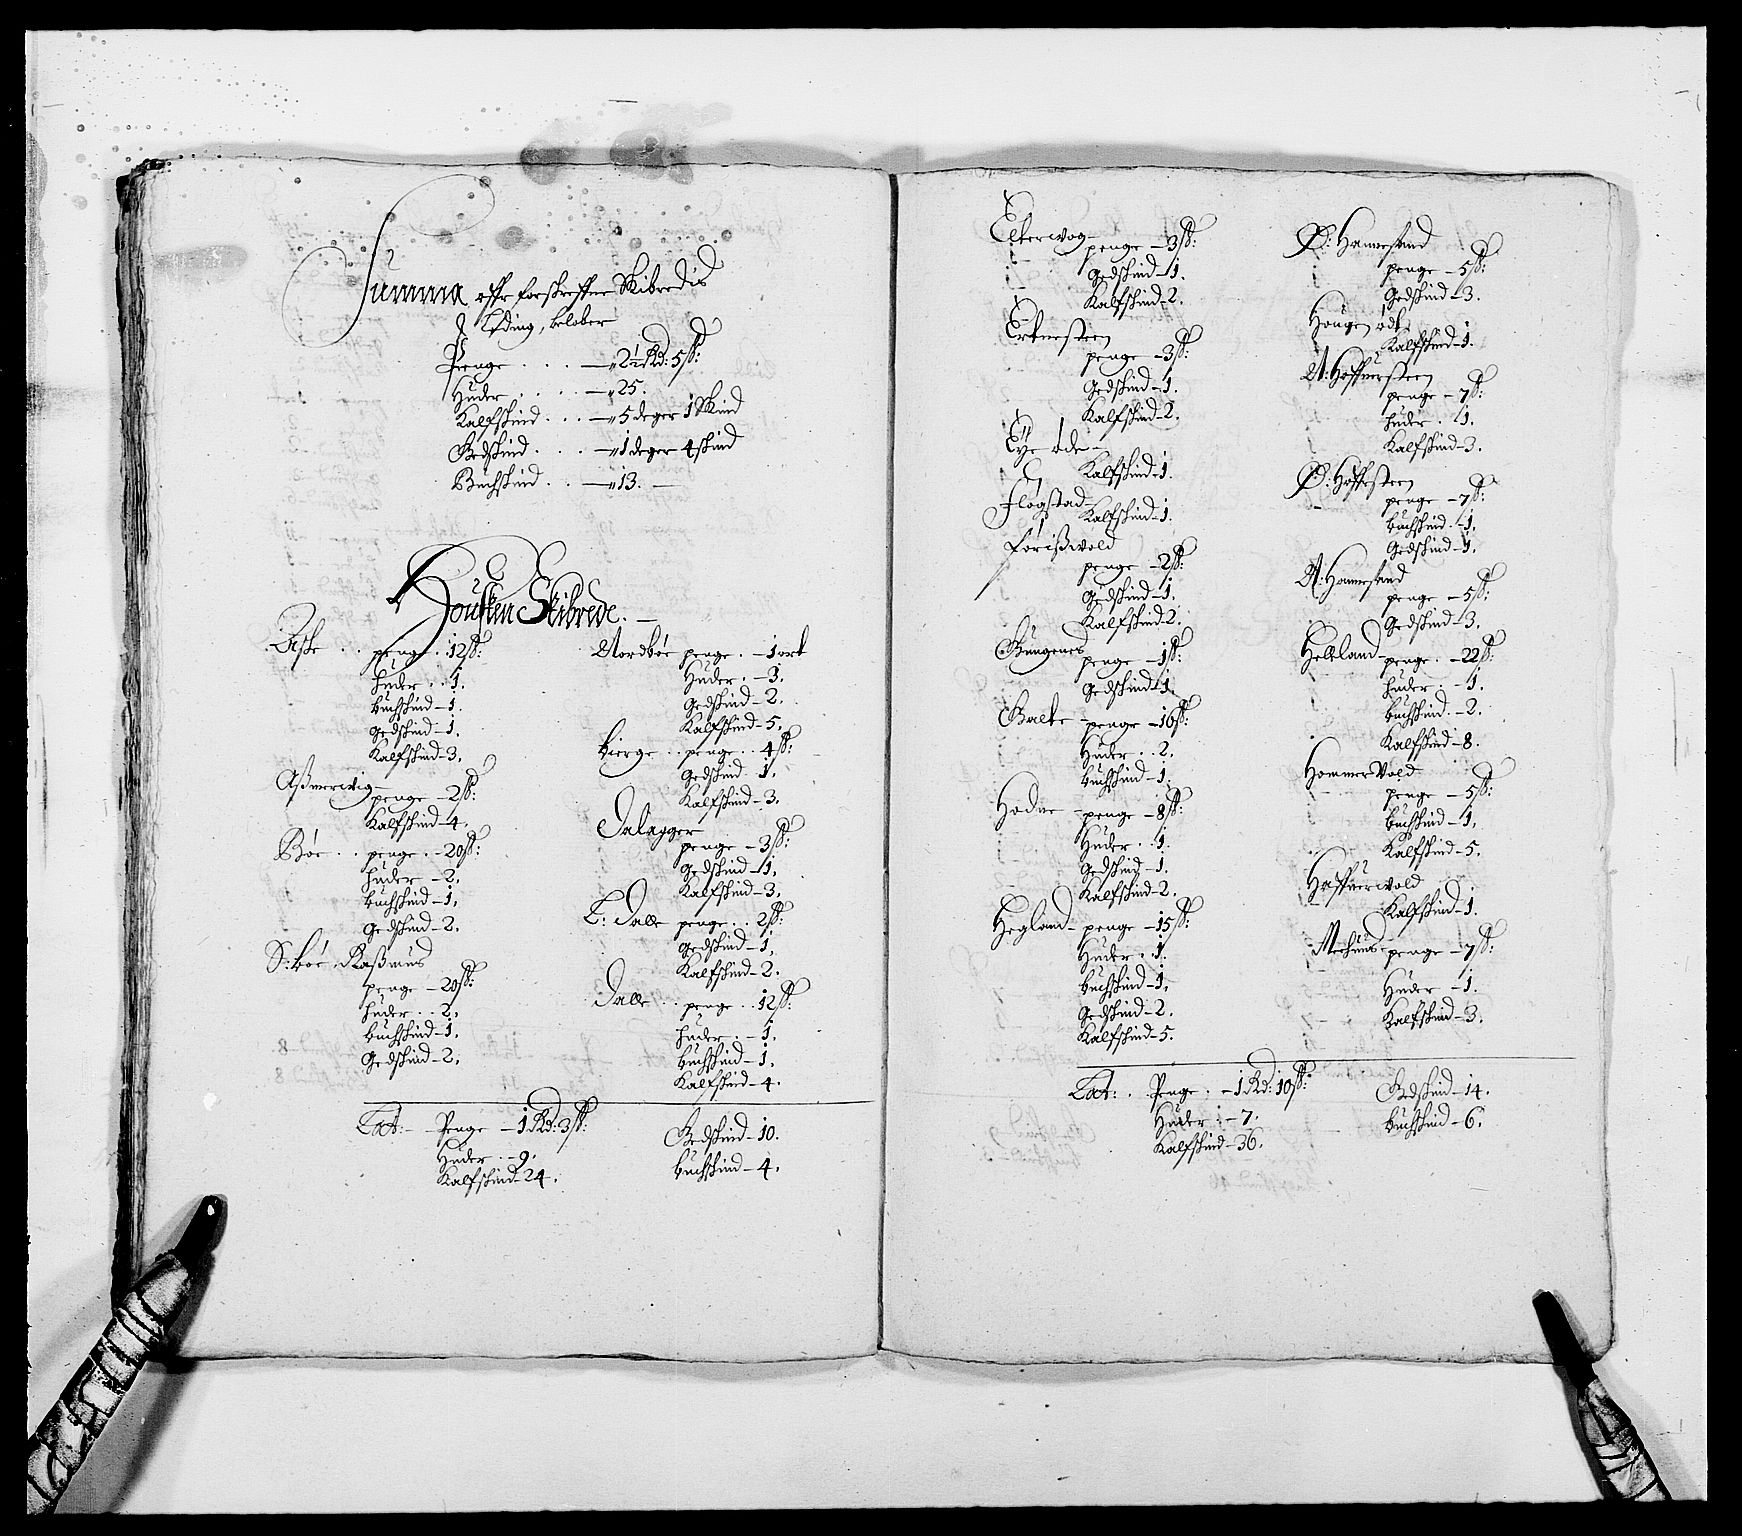 Summa effr forskreffne Skibredis
Leding, belober
Penge . . . . — „2½ Rd: 5 ß:
Huder . . . . . — „25.
Kalfskind . . . — „5 deger 1 Skind
Gedskind . . . — „1 deger 4 skind
Buchskind . . — „13. —
Housken Skibrede. —
Aske . . penge . . 12 ß:
huder . . 1.
buchskind – 1.
gedskind – 1.
Kalfskind – 3.
Aßmervig –
penge – 2 ß:
Kalfskind – 4.
Böe . . penge . – 20 ß:
huder – 2.
buchskind – 1.
gedskind – 2.
S: böe, Raßmus
penge – 20 ß:
huder . . 2.
buchskind – 1.
gedskind – 2.
Nordböe penge . – 1 ort
Huder . – 3.
gedskind – 2.
Kalfskind – 5.
bierge . . penge . . 4 ß:
gedskind . 1.
Kalfskind – 3.
Dalagger
penge – 3 ß:
gedskind – 1.
Kalfskind – 3.
L: Dalle penge . . 2 ß:
gedskind – 1.
Kalfskind – 2.
Dalle . . penge . . 12 ß:
huder . – 1.
buchskind – 1.
Kalfskind – 4.
Lat: – Penge – 1 Rd: 3 ß:
Huder . – 9.
Kalfskind – 24.
Gedskind – 10.
buchskind – 4.
Elterwog –
penge – 3 ß:
gedskind – 1.
Kalfskind – 2.
Erkensteen
penge – 3 ß:
gedskind – 1.
Kalfskind – 2.
Eye öde –
Kalfskind – 1.
Flogstad –
Kalfskind – 1.
forißvold
penge – 2 ß:
gedskind – 1.
Kalfskind – 2.
Gungenes
penge – 1 ß:
gedskind – 1.
Galte – penge – 16 ß:
Huder . . 2.
buchskind – 1.
Hodne – penge – 8 ß:
Huder . . 1.
gedskind – 1.
Kalfskind – 2.
Hegland – penge – 15 ß:
Huder . . 1.
buchskind – 1.
gedskind – 2.
Kalfskind – 5.
Ø: Hannesand
penge – 5 ß:
gedskind – 3.
Hougen öde
Kalfskind – 1.
N: Hoffuersteen
penge – 7 ß:
huder . 1.
Kalfskind – 3.
Ø: Hoffesteen
penge – 7 ß:
buchskind . – 1.
gedskind – 1.
N: Hannesand
penge – 5 ß:
gedskind – 3.
Helleland – penge . – 22 ß:
huder . – 1.
buchskind – 2.
Kalfskind – 8.
Hommer Vold
penge – 5 ß:
buchskind – 1.
Kalfskind – 5.
Haffnerwold
Kalfskind – 1.
Mechuns – penge – 7 ß:
Huder – 1.
Kalfskind – 3.
Lat: . Penge . – 1 Rd: 10 ß:
Huder : – 7.
Kalfskind – 36.
Gedskind – 14.
buchskind – 6.